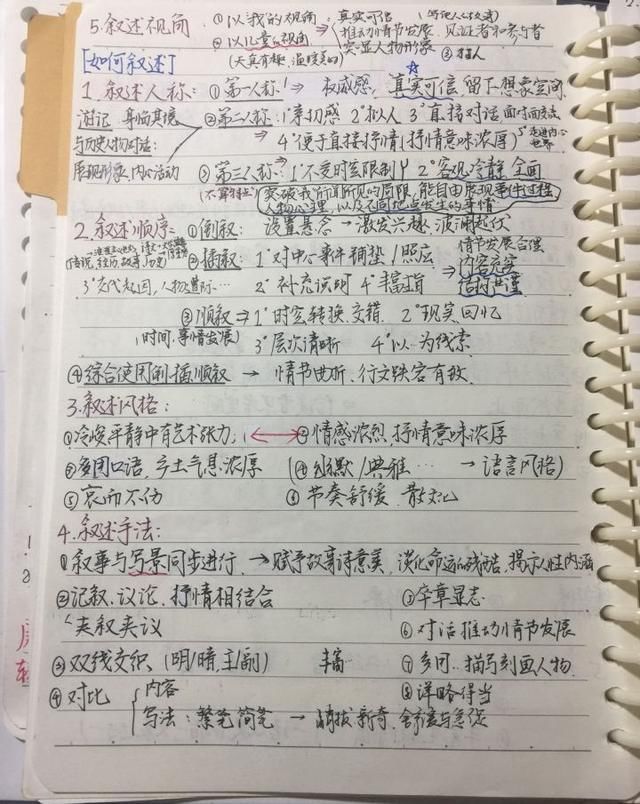 5.叙述视角 ①以我的视角 真实可信
②以儿童的视角 推动情节发展 见证者和参与者
(天真有趣,温暖美好) 突显人物形象 ③拟人
[如何叙述]
1.叙述人称:①第一人称 ⇒ 权威感,真实可信 留下想象空间
游记 身临其境 ②第二人称:1°亲切感 2°拟人 3°直接对话
与历史人物对话: ⇒ 4°便于直接抒情(抒情意味浓厚) 5°走进内心世界
展现形象、内心活动 ③第三人称:1°不受时空限制 2°客观冷静 全面
突破我所闻所见的局限,能自由展现事件过程
人物心理,以及不同地点发生的事情
2.叙述顺序:①倒叙:设置悬念→激发兴趣,波澜起伏
传说,经历,故事,历史 ②插叙:1°对中心事件铺垫/照应 情节发展合理
3°交代起因,人物遭际… 2°补充说明 4°丰富 ⇒ 内容充实
③顺叙⇒1°时空转换,交错 2°现实,回忆 结构严谨
(时间,事情发展) 3°层次清晰 4°以 为线索
④综合使用倒插顺叙 → 情节曲折、行文跌宕有致
3.叙述风格:
①冷峻平静中有艺术张力, ②情感浓烈,抒情意味浓厚
③多用口语,乡土气息浓厚 (④幽默/典雅… →语言风格)
⑤哀而不伤 ⑥节奏舒缓 散文化
4.叙述手法:
①叙事与写景同步进行,→赋予故事诗意美,淡化命运的残酷,揭示人性内涵
②记叙、议论、抒情相结合 ⑤卒章显志
夹叙夹议 ⑥对话推动情节发展
③双线交织、(明/暗,主/副) 丰富 ⑦多用…描写刻画人物
④对比 内容 ⑧详略得当
写法:繁笔简笔 → 新奇,舒缓与急促